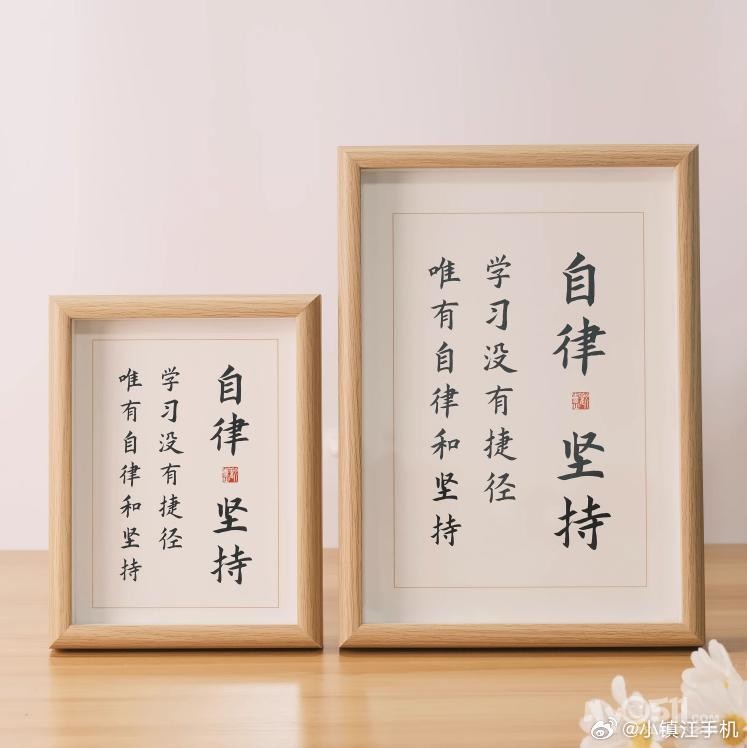 自律
坚持
学习没有捷径
唯有自律和坚持
自律
坚持
学习没有捷径
唯有自律和坚持
@小镇江手机